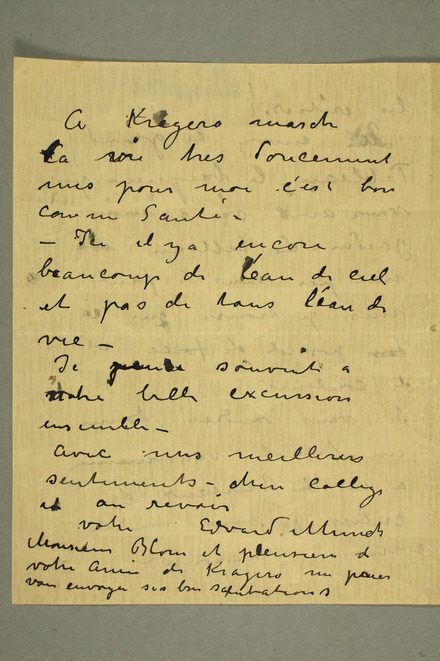 A Kragerø march
la vie tres doucement
mes pour moi c'est bon
comm Santé –
– Ici il y a encore
beaucoup de l'eau de ciel
et pas de tans l'eau de
vie –
Je pense souvent a
notre belle excursion
ensemble –
avec mes meilleurs
sentiments – cher collegs
et au revoir
votre Edvard Munch
Monsieur Blom et plusieurs d
votre amis de Kragerø me prier
vous envoyer ses bon salutations